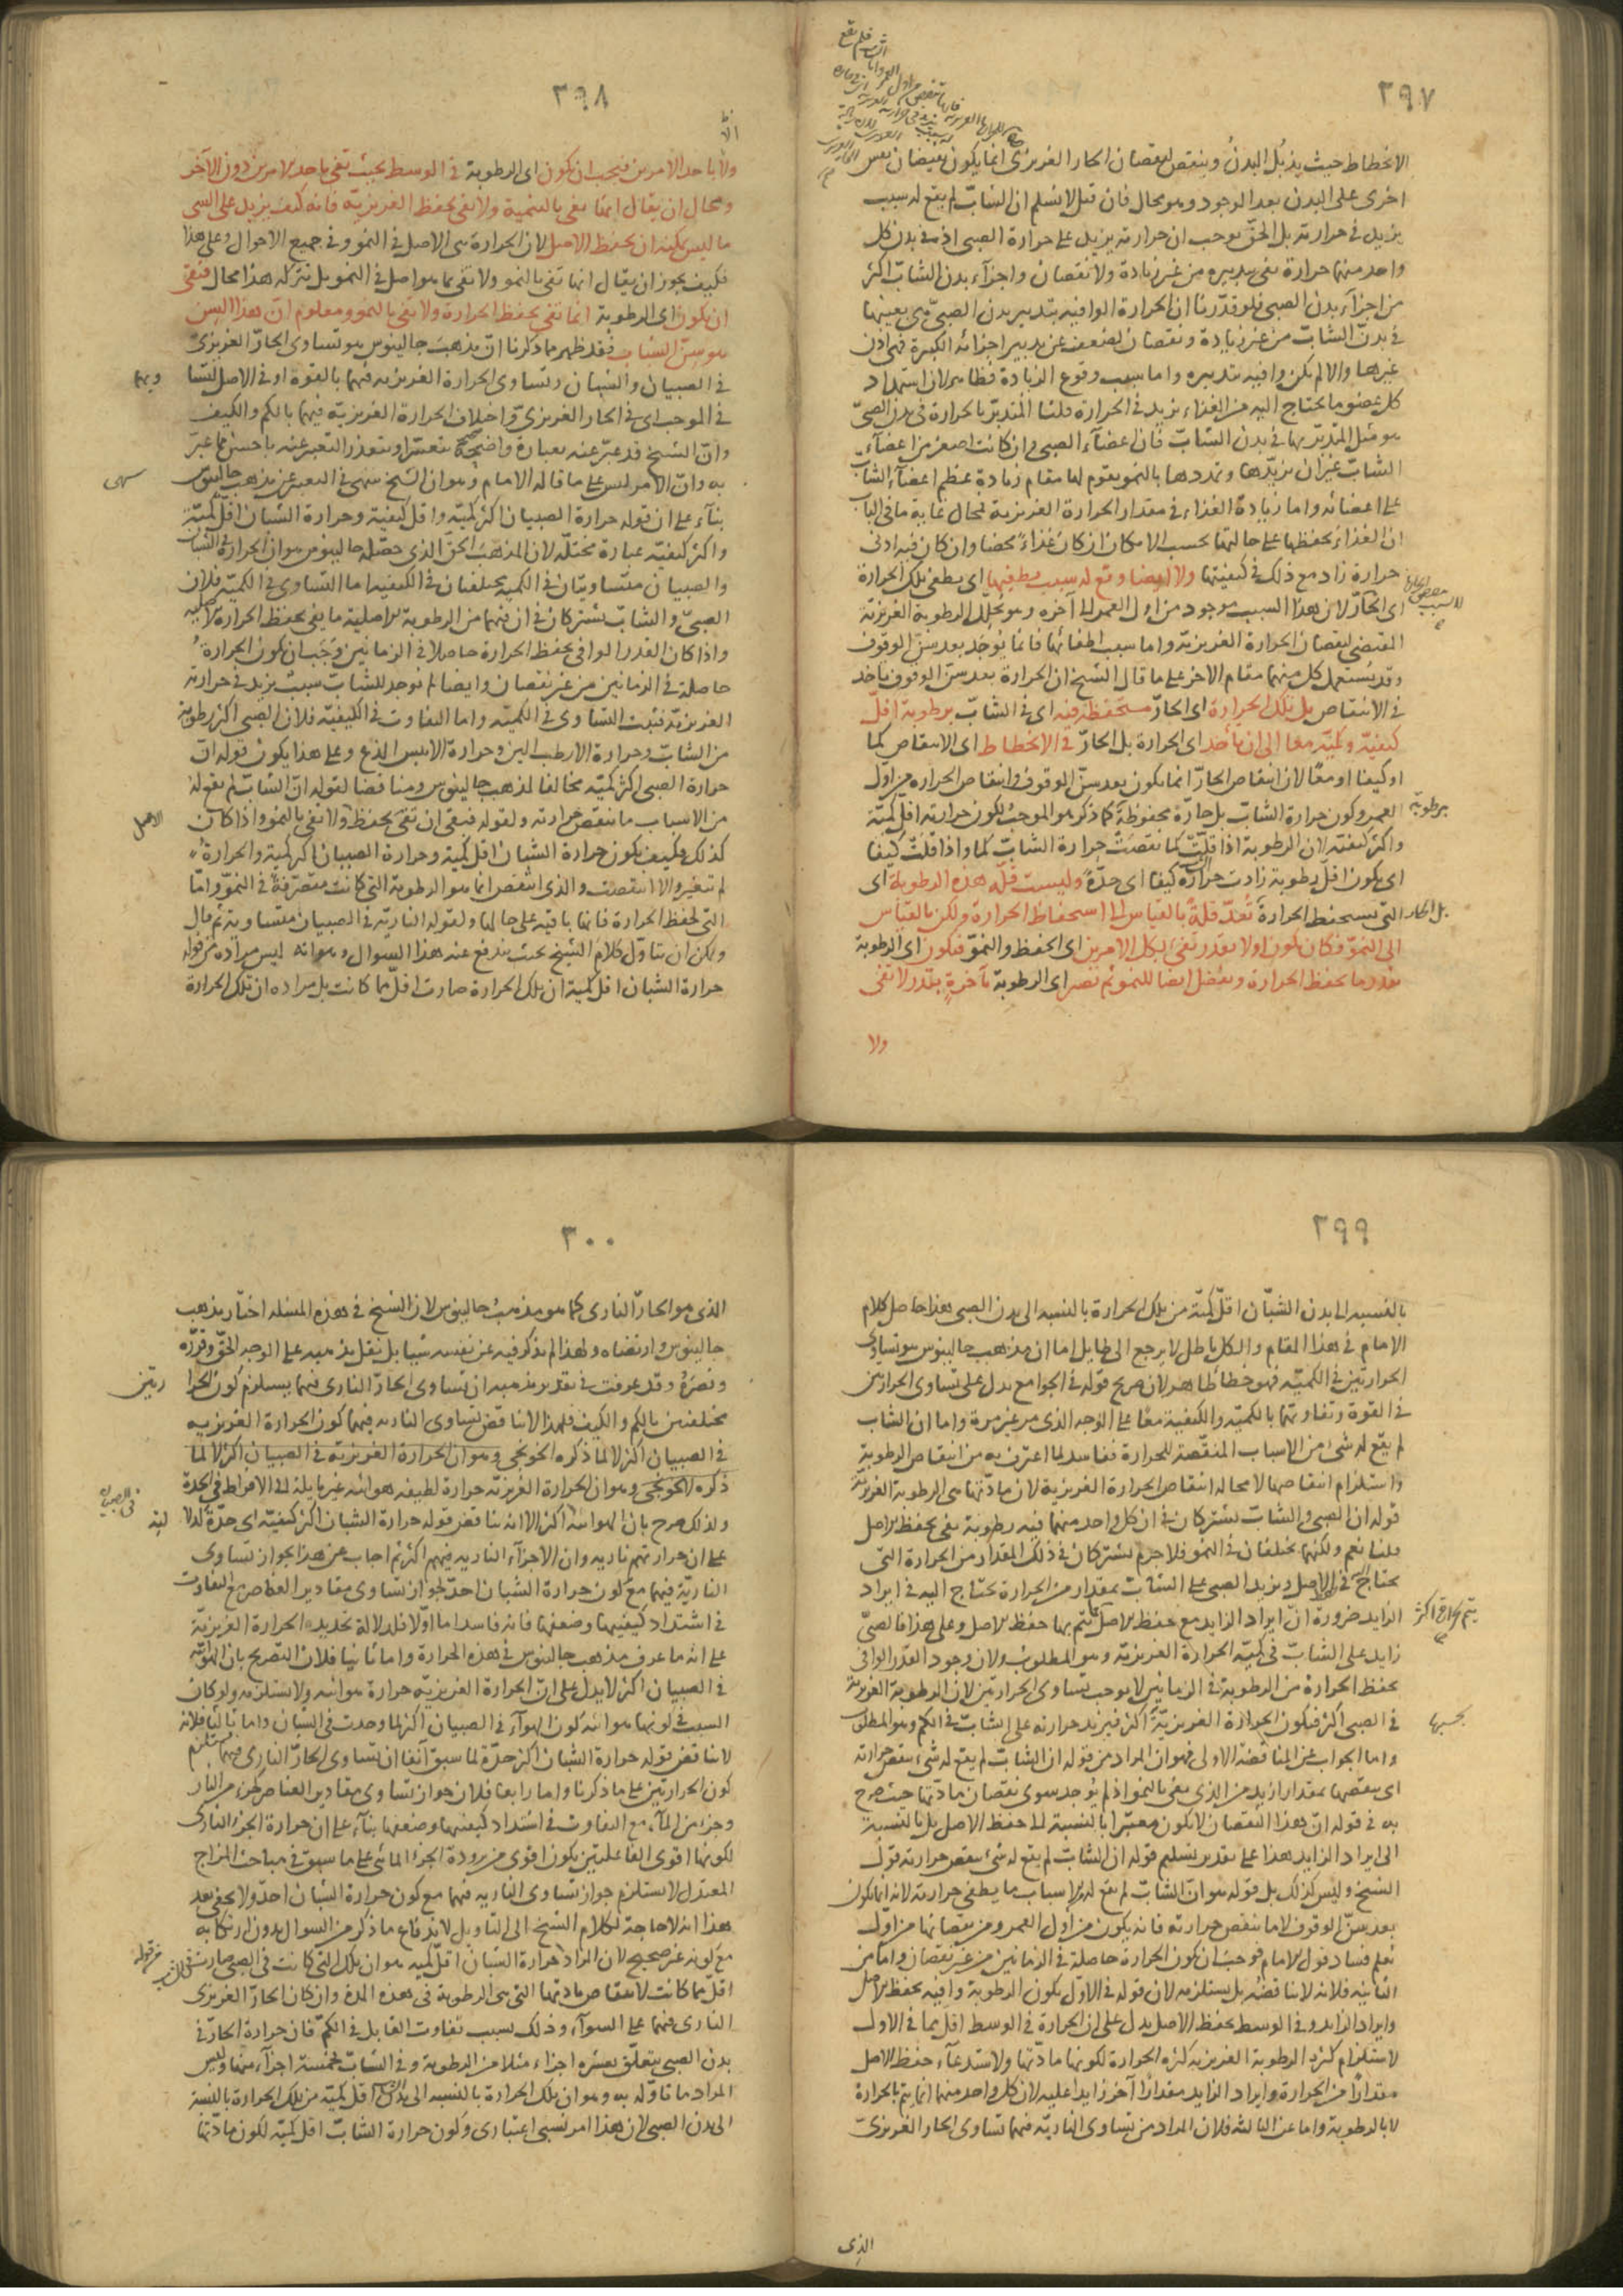 ٣٩٧
الانحطاط حيث يذبل البدن وينقص لنقصان الحار الغريزى انما يكون بفيضان نفس
اخرى على البدن بعد الوجود وهو محال فان قيل لا نسلم ان الشاب لم يقع له سبب
يزيد فى حرارته بل الحق يوجب ان حرارته يزيد على حرارة الصبى اذ فى بدن كل
واحد منهما حرارة تفى بتدبيره من غير زيادة ولا نقصان واجزاء بدن الشاب اكثر
من اجزاء بدن الصبى فلو قدرنا ان الحرارة الوافية بتدبير بدن الصبى هى بعينها
فى بدن الشاب من غير زيادة ونقصان لضعف عن تدبير اجزائه الكثيرة فهى اذن
غيرها والا لم يكن وافية بتدبيره واما سبب وقوع الزيادة فظاهر لان استمداد
كل عضو ما يحتاج اليه من الغذاء يزيد فى الحرارة قلنا المتدبر بالحرارة فى بدن الصبى
هو مثل المتدبر بها فى بدن الشاب فان اعضاء الصبى وان كانت اصغر من اعضاء
الشاب غير ان تزيدها وتمددها بالنمو يقوم لها مقام زيادة عظم اعضاء الشاب
على اعضائه واما زيادة الغذاء فى مقدار الحرارة الغريزية فمحال غاية ما فى الباب
ان الغذاء يحفظها على حالتها بحسب الامكان ان كان غذاء محضا وان كان فيه ادنى
حرارة زاد مع ذلك فى كيفيتها ولا ايضا وقع له سبب يطفيها اى يطفى تلك الحرارة
اى الحار لان هذا السبب موجود من اول العمر الى آخره وهو تحلل الرطوبة الغريزية
المقتضى لنقصان الحرارة الغريزية واما سبب اطفائها فانما يوجد بعد سن الوقوف
وقد يستعمل كل منهما مقام الاخر على ما قال الشيخ ان الحرارة بعد سن الوقوف تأخذ
فى الانتقاص بل تلك الحرارة اى الحار مستحفظة فيه اى فى الشاب برطوبة اقل
كيفية وكمية معا الى ان يأخذ اى الحرارة بل الحار فى الانحطاط اى الانتقاص كما
او كيفا او معا لان انتقاص الحار انما يكون بعد سن الوقوف وانتقاص الحرارة من اول
العمر وكون حرارة الشاب بل حاره محفوظة كما ذكر هو الموجب لكون حرارته اقل كمية
برطوبة
واكثر كيفية لان الرطوبة اذا قلت كما نقصت حرارة الشاب كما واذا قلت كيفا
اى يكون اقل رطوبة زادت حرارة كيفا اى حدة وليست قلة هذه الرطوبة اى
بل الحار
التى تستحفظ الحرارة تعد قلة بالقياس الى استحفاظ الحرارة ولكن بالقياس
الى النمو فكان يكون اولا بقدر تفى بكل الامرين اى الحفظ والنمو فيكون اى الرطوبة
بقدر ما يحفظ الحرارة وتفضل ايضا للنمو ثم تصير اى الرطوبة بآخرة بقدر لا تفى
ولا
٣٩٨
ولا باحد الامرين فيجب ان يكون اى الرطوبة فى الوسط بحيث تفى باحد الامرين دون الآخر
ومحال ان يقال انها تفى بالتنمية ولا تفى بحفظ الغريزية فانه كيف يزيد على الشى
ما ليس يمكنه ان يحفظ الاصل لان الحرارة هى الاصل فى النمو وفى جميع الاحوال وعلى هذا
فكيف يجوز ان يقال انها تفى بالنمو ولا تفى بما هو اصل فى النمو بل تتركه هذا محال فبقى
ان يكون اى الرطوبة انما تفى بحفظ الحرارة ولا تفى بالنمو ومعلوم ان هذا السن
هو سن الشباب فقد ظهر مما ذكرنا ان مذهب جالينوس هو تساوى الحار الغريزى
فى الصبيان والشبان وتساوى الحرارة الغريزية فيهما بالقوة او فى الاصل لتساويهما
فى الموجب اى فى الحار الغريزى واختلاف الحرارة الغريزية فيهما بالكم والكيف
وان الشيخ قد عبر عنه بعبارة واضحة صحيحة يتعسر او يتعذر التعبير عنه باحسن مما عبر
به وان الامر ليس على ما قاله الامام وهو ان الشيخ سهى فى التعبير عن مذهب جالينوس
سهى
بناء على ان قوله حرارة الصبيان اكثر كمية واقل كيفية وحرارة الشبان اقل كمية
واكثر كيفية عبارة مختلة لان المذهب الحق الذى حصله جالينوس هو ان الحرارة فى الشبان
والصبيان متساويتان فى الكمية مختلفتان فى الكيفية اما التساوى فى الكمية فلان
الصبى والشاب يشتركان فى ان فيهما من الرطوبة الاصلية ما يفى بحفظ الحرارة الاصلية
واذا كان القدر الوافى بحفظ الحرارة حاصلا فى الزمانين وجب ان يكون الحرارة
حاصلة فى الزمانين من غير نقصان وايضا لم يوجد للشاب سبب يزيد فى حرارته
الغريزية فثبت التساوى فى الكمية واما التفاوت فى الكيفية فلان الصبى اكثر رطوبة
من الشاب وحرارة الارطب الين وحرارة الايبس الذع وعلى هذا يكون قوله ان
حرارة الصبى اكثر كمية مخالفا لمذهب جالينوس ومناقضا لقوله ان الشاب لم يقع له
من الاسباب ما ينقص حرارته ولقوله فبقى ان تفى بحفظ الاصل ولا تفى بالنمو واذا كان
كذلك فكيف يكون حرارة الشبان اقل كمية وحرارة الصبيان اكثر كمية والحرارة
لم تتغير ولا انتقصت والذى انتقص انما هو الرطوبة التى كانت متصرفة فى النمو واما
التى لحفظ الحرارة فانها باقية على حالها ولقوله النارية فى الصبيان متساوية ثم قال
ويمكن ان يتأول كلام الشيخ بحيث يندفع عنه هذا السوال وهو انه ليس مراده من قوله
حرارة الشبان اقل كمية ان تلك الحرارة صارت اقل مما كانت بل مراده ان تلك الحرارة
٣٩٩
بالنسبة الى بدن الشبان اقل كمية من تلك الحرارة بالنسبة الى بدن الصبى هذا حاصل كلام
الامام فى هذا المقام والكل باطل لا يرجع الى طايل اما ان مذهب جالينوس هو تساوى
الحرارتين فى الكمية فهو خطا ظاهر لان صريح قوله فى الجوامع يدل على تساوى الحرارتين
فى القوة وتفاوتهما بالكمية والكيفية معا على الوجه الذى مر غير مرة واما ان الشاب
لم يقع له شئ من الاسباب المنقصة للحرارة ففاسد لما اعترف به من انتقاص الرطوبة
واستلزام انتقاصها لا محالة انتقاص الحرارة الغريزية لان مادتها هى الرطوبة الغريزية
قوله ان الصبى والشاب يشتركان فى ان كل واحد منهما فيه رطوبة تفى بحفظ الاصل
قلنا نعم ولكنهما يختلفان فى النمو فلا جرم يشتركان فى ذلك المقدار من الحرارة التى
يحتاج فى الاصل ويزيد الصبى على الشاب بمقدار من الحرارة يحتاج اليه فى ايراد
الزايد ضرورة ان ايراد الزايد مع حفظ الاصل يتم بها حفظ الاصل وعلى هذا فالصبى
زايد على الشاب فى كمية الحرارة الغريزية وهو المطلوب ولان وجود القدر الوافى
بحفظ الحرارة من الرطوبة فى الزمانين لا يوجب تساوى الحرارتين لان الرطوبة الغريزية
فى الصبى اكثر فيكون الحرارة الغريزية اكثر فيزيد حرارته على الشاب فى الكم وهو المطلوب
بحسبها
واما الجواب عن المناقضة الاولى فهو ان المراد من قوله ان الشاب لم يقع له شئ ينقص حرارته
اى ينقصها بمقدار ازيد من الذى يفى بالنمو اذ لم يوجد سوى نقصان مادتها حيث صرح
به فى قوله ان هذا النقصان لا يكون معتبرا بالنسبة الى حفظ الاصل بل بالنسبة
الى ايراد الزايد هذا على تقدير تسليم قوله ان الشاب لم يقع له شئ ينقص حرارته قول
الشيخ وليس كذلك بل قوله هو ان الشاب لم يقع له الاسباب ما يطفى حرارته لانه انما يكون
بعد سن الوقوف لا ما ينقص حرارته فانه يكون من اول العمر ومن نقصانها من اول
يعلم فساد قول الامام فوجب ان يكون الحرارة حاصلة فى الزمانين من غير نقصان واما عن
الثانية فلانه لا يناقضه بل يستلزمه لان قوله فى الاول يكون الرطوبة وافية بحفظ الاصل
وايراد الزايد وفى الوسط بحفظ الاصل يدل على ان الحرارة فى الوسط اقل مما فى الاول
لاستلزام كثرة الرطوبة الغريزية كثرة الحرارة لكونها مادتها ولاستدعاء حفظ الاصل
مقدارا من الحرارة وايراد الزايد مقدارا آخر زايدا عليه لان كل واحد منهما انما يتم بالحرارة
لا بالرطوبة واما عن الثالثة فلان المراد من تساوى النارية فيهما تساوى الحار الغريزى
الذى
٣٠٠
الذى هو الحار النارى كما هو مذهب جالينوس لان الشيخ فى هذه المسئلة اختار مذهب
جالينوس وارتضاه ولهذا لم يذكر فيه عن نفسه شيئا بل نقل مذهبه على الوجه الحق وقرره
ونصره وقد عرفت فى تقرير مذهبه ان تساوى الحار النارى فيهما يستلزم كون الحرارتين
مختلفتين بالكم والكيف فلهذا لا يناقض تساوى النارية فيهما كون الحرارة الغريزية
فى الصبيان اكثر لا لما ذكره الخونجى وهو ان الحرارة الغريزية فى الصبيان اكثر لا لما
ذكره الخونجى وهو ان الحرارة الغريزية حرارة لطيفة هوائية غير مايلة الى الافراط فى الحدة
ولذلك صرح بان الهوائية اكثر الا انه يناقض قوله حرارة الشبان اكثر كيفية اى حدة لدلالته
على ان حرارتهم نارية وان الاجزاء النارية فيهم اكثر ثم اجاب عن هذا بجواز تساوى
النارية فيهما مع كون حرارة الشبان احد لجواز تساوى مقادير العناصر مع التفاوت
فى اشتداد كيفيتها وضعفها فانه فاسد اما اولا فلدلالة تحديده الحرارة الغريزية
على انه ما عرف مذهب جالينوس فى هذه الحرارة واما ثانيا فلان التصريح بان الهوائية
فى الصبيان اكثر لا يدل على ان الحرارة الغريزية حرارة هوائية ولا يستلزمه ولو كان
السبب فى كونها هوائية كون الهواء فى الصبيان اكثر لما وجدت فى الشبان واما ثالثا فلانه
لا يناقض قوله حرارة الشبان اكثر حدة لما سبق آنفا ان تساوى الحار النارى فيهما يستلزم
كون الحرارتين على ما ذكرنا واما رابعا فلان جواز تساوى مقادير العناصر كجزء من النار
وجزء من الماء مع التفاوت فى اشتداد كيفيتها وضعفها بناء على ان حرارة الجزء النارى
لكونها اقوى الفاعلتين يكون اقوى من برودة الجزء المائى على ما سبق فى مباحث المزاج
المعتدل لا يستلزم جواز تساوى النارية فيهما مع كون حرارة الشبان احد ولا يخفى بعد
هذا انه لا حاجة لكلام الشيخ الى التاويل لاندفاع ما ذكر من السوال بدون ارتكابه
مع كونه غير صحيح لان المراد من قوله حرارة الشبان اقل كمية هو ان تلك التى كانت فى الصبى صارت فى الشاب
اقل مما كانت لانتقاص مادتها التى هى الرطوبة فى هذه المدة وان كان الحار الغريزى
النارى فيهما على السواء وذلك بسبب تفاوت القابل فى الكم فان حرارة الحار فى
بدن الصبى يتعلق بعشرة اجزاء مثلا من الرطوبة وفى الشاب بخمسة اجزاء منها وليس
المراد ما تأوله به وهو ان تلك الحرارة بالنسبة الى بدن الشاب اقل كمية من تلك الحرارة بالنسبة
الى بدن الصبى لان هذا امر نسبى اعتبارى وكون حرارة الشاب اقل كمية لكون مادتها